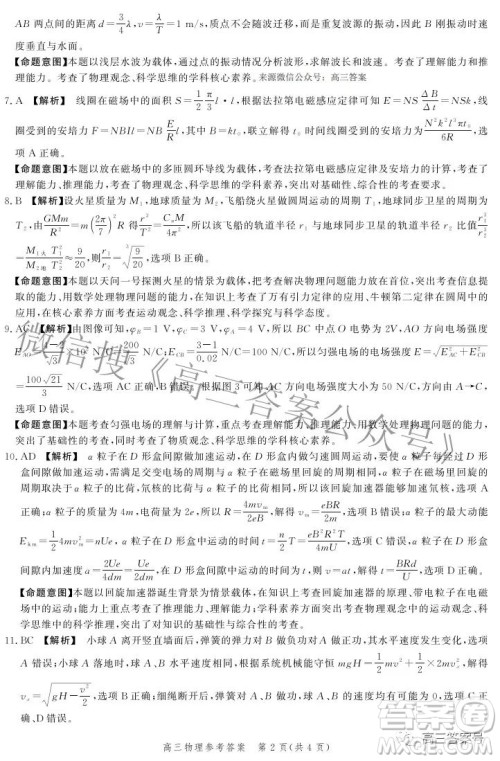 AB 两点间的距离 d=3/4λ, v=λ/T=1 m/s, 质点不会随波迁移, 而是重复波源的振动, 因此 B 刚振动时速
度垂直与水面。
【命题意图】本题以浅层水波为载体, 通过质点的振动情况分析波形, 求解波长和波速。考查了理解能力和推
理能力。考查了物理观念、科学思维的学科核心素养。来源微信公众号: 高三答案
7. A 【解析】 线圈在磁场中的面积 S=1/2·π/3 l·l, 根据法拉第电磁感应定律可知 E=NS ΔB/Δt=NSk, 线
圈受到的安培力 F=NBIl=NB E/R l, 解得线圈受到的安培力的大小, B=kt₀, 联立解得
选
项 A 正确。
【命题意图】本题以放在磁场中的多匝圆环导线为载体, 考查法拉第电磁感应定律及安培力的计算, 考查了
理解能力、推理能力, 体现了对基础性、综合性的考查要求。
8. B 【解析】设火星质量为 M₁, 地球质量为 M₂, 飞船绕火星做圆周运动的周期 T₁, 地球同步卫星的周期为
T₂, 由
所以该飞船的轨道半径 r₁ 与地球同步卫星的轨道半径 r₂ 比值
选项 B 正确。
【命题意图】本题以天问一号探测火星的情景为载体, 把考查解决物理问题的能力放在首位, 考查从信息提
取的能力, 用数学处理物理问题的能力, 在知识点方面, 考查了万有引力定律的应用、牛顿第二定律在圆周中
的应用, 在核心素养方面, 考查了物理观念、科学思维、科学态度。
9. AC 【解析】由图像可知, φB=1 V, φC=3 V, φA=4 V, 所以 BC 中点 O 电势为 2V, AO 方向电场强度
所以匀强电场的电场强度
=100√21/3 N/C, 选项 AC 正确、选项 B 错误; 电场强度的最大值大于 50 N/C, 方向由 A→C,
选项 D 错误。
【命题意图】考查匀强电场的理解与计算, 重点考查理解能力、推理能力、用数学处理物理问题的能力,
突出了基础性的考查, 同时考查了物理观念、科学思维的学科核心素养。
10. AD 【解析】 α 粒子在 D 形盒间隙做加速运动, 在 D 形盒内做匀速圆周运动, 要使 α 粒子每经过 D 形
盒间隙都做加速运动, 需满足交变电场的变化周期等于 α 粒子在磁场中的运动周期, α 粒子在磁场中的运
动周期取决于 α 粒子的比荷, 氘核的比荷与 α 粒子的比荷相同, 所以该回旋加速器能够加速氘核, 选项 A
正确; α 粒子质量为 4m, 电荷量为 2e, 所以 R=4mvm/2eB, 解得 vm=eBR/2m, 选项 B 错误; α 粒子的最大动能
Ekm=1/2 4mvm²=nUe, α 粒子在电场中运动的时间 t=n/2 T=eB²R²T/4mU, 选项 C 错误; α 粒子在 D 形盒
间隙内加速度 a=2Ue/4dm=Ue/2dm, α 粒子在电场中运动的时间为 t, 则 v=at, 解得 t=BRd/U, 选项 D 正确。
【命题意图】本题以回旋加速器诞生背景为情景为载体, 在知识点上考查了回旋加速器的原理、带电粒子在电
磁场中的运动; 能力上重点考查了推理能力, 用数学解决物理问题的能力; 在核心素养方面突出了对科学思
维的考查, 体现了对基础性与综合性的考查。
11. BC 【解析】 小球 A 离开竖直墙面后, 弹簧的弹力对 B 做负功对 A 做正功, 其水平速度发生变化, 选项
A 错误; 小球 A 落地时, 球 A 与球 B 速度相等, 根据机械能守恒可知 mgH−1/2 mv²+1/2×2mvₓ², 解得
选项 B 正确; 细绳断开后, 弹簧的弹力对 A 一直做正功, 所以 A 的机械能一直在增大, 选
高三物理参考答案 第 2 页(共 4 页)
微信搜《高三答案公众号》
高三答案号